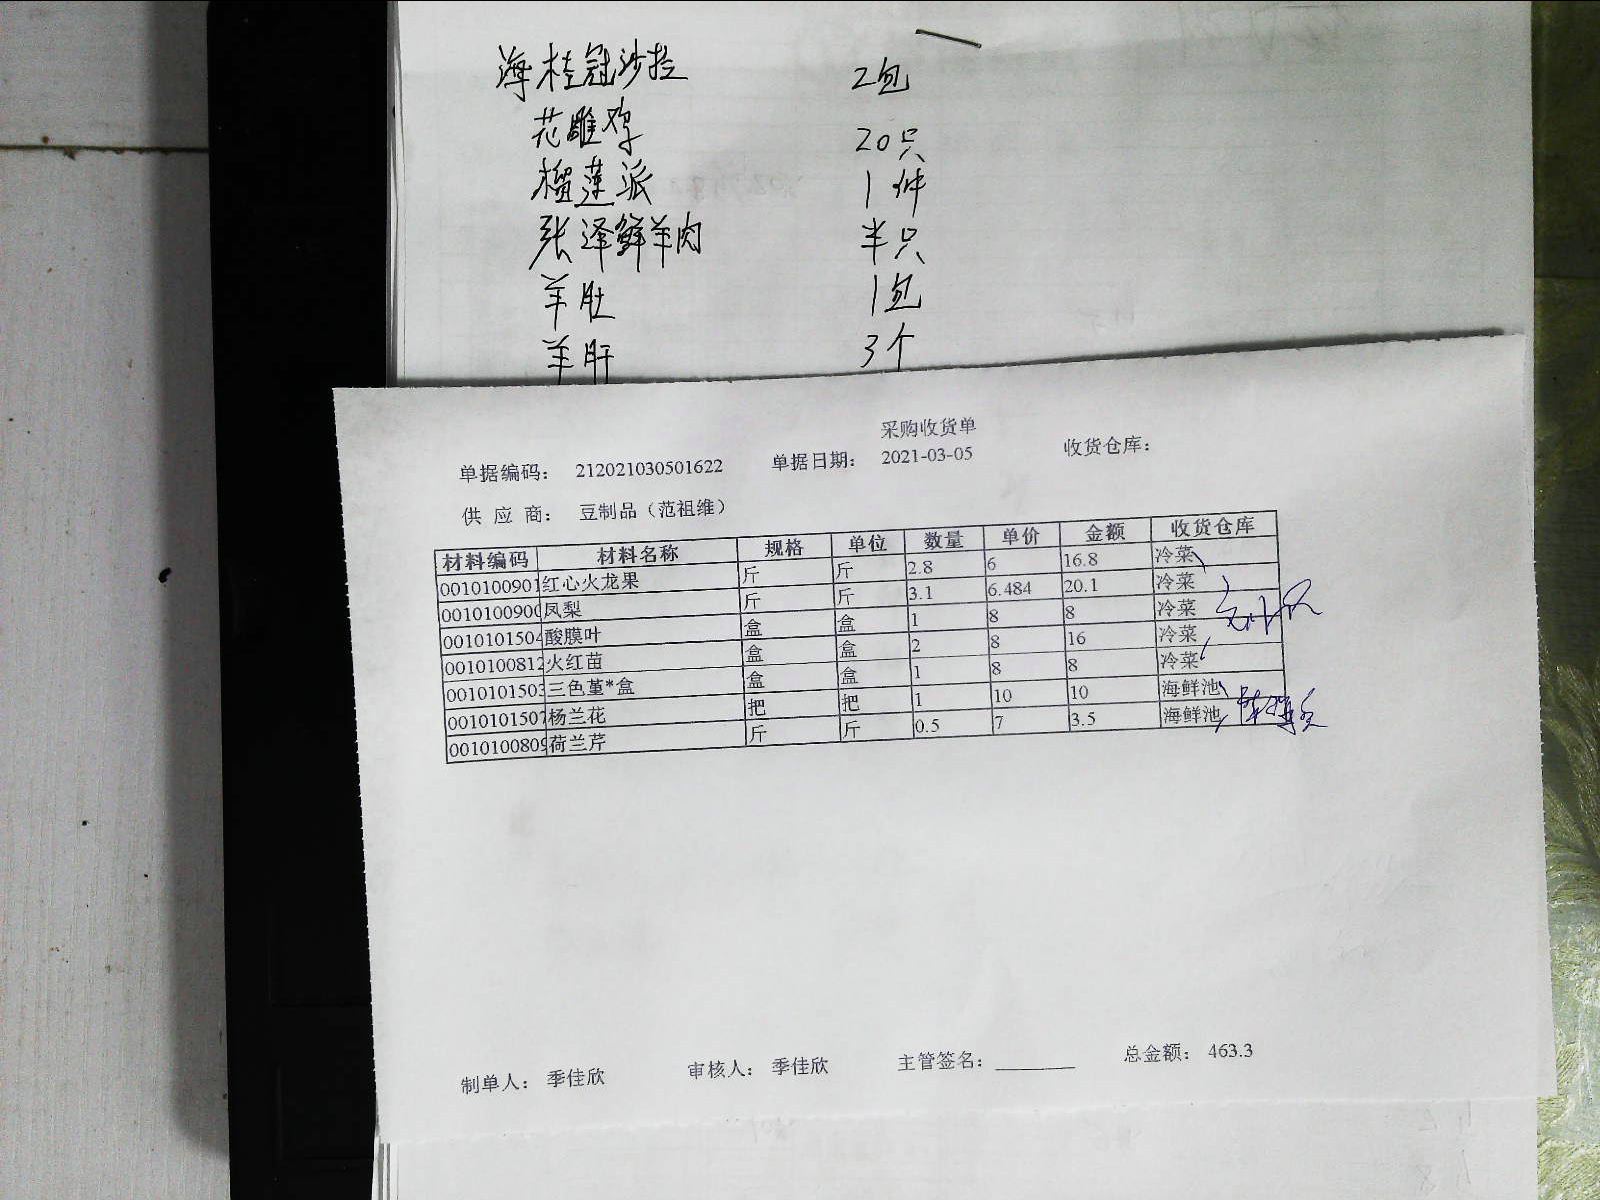 海桂冠沙拉 2包
花雕鸡 20只
榴莲派 1件
张泽鲜羊肉 半只
羊肚 1包
羊肝 3个
采购收货单
单据编码： 212021030501622 单据日期： 2021-03-05 收货仓库：
供 应 商： 豆制品（范祖维）
材料编码 材料名称 规格 单位 数量 单价 金额 收货仓库
0010100901 红心火龙果 斤 斤 2.8 6 16.8 冷菜
0010100900 凤梨 斤 斤 3.1 6.484 20.1 冷菜
0010101504 酸膜叶 盒 盒 1 8 8 冷菜
0010100812 火红苗 盒 盒 2 8 16 冷菜
0010101503 三色堇*盒 盒 盒 1 8 8 冷菜
0010101507 杨兰花 把 把 1 10 10 海鲜池
0010100809 荷兰芹 斤 斤 0.5 7 3.5 海鲜池
制单人： 季佳欣 审核人： 季佳欣 主管签名： 总金额： 463.3